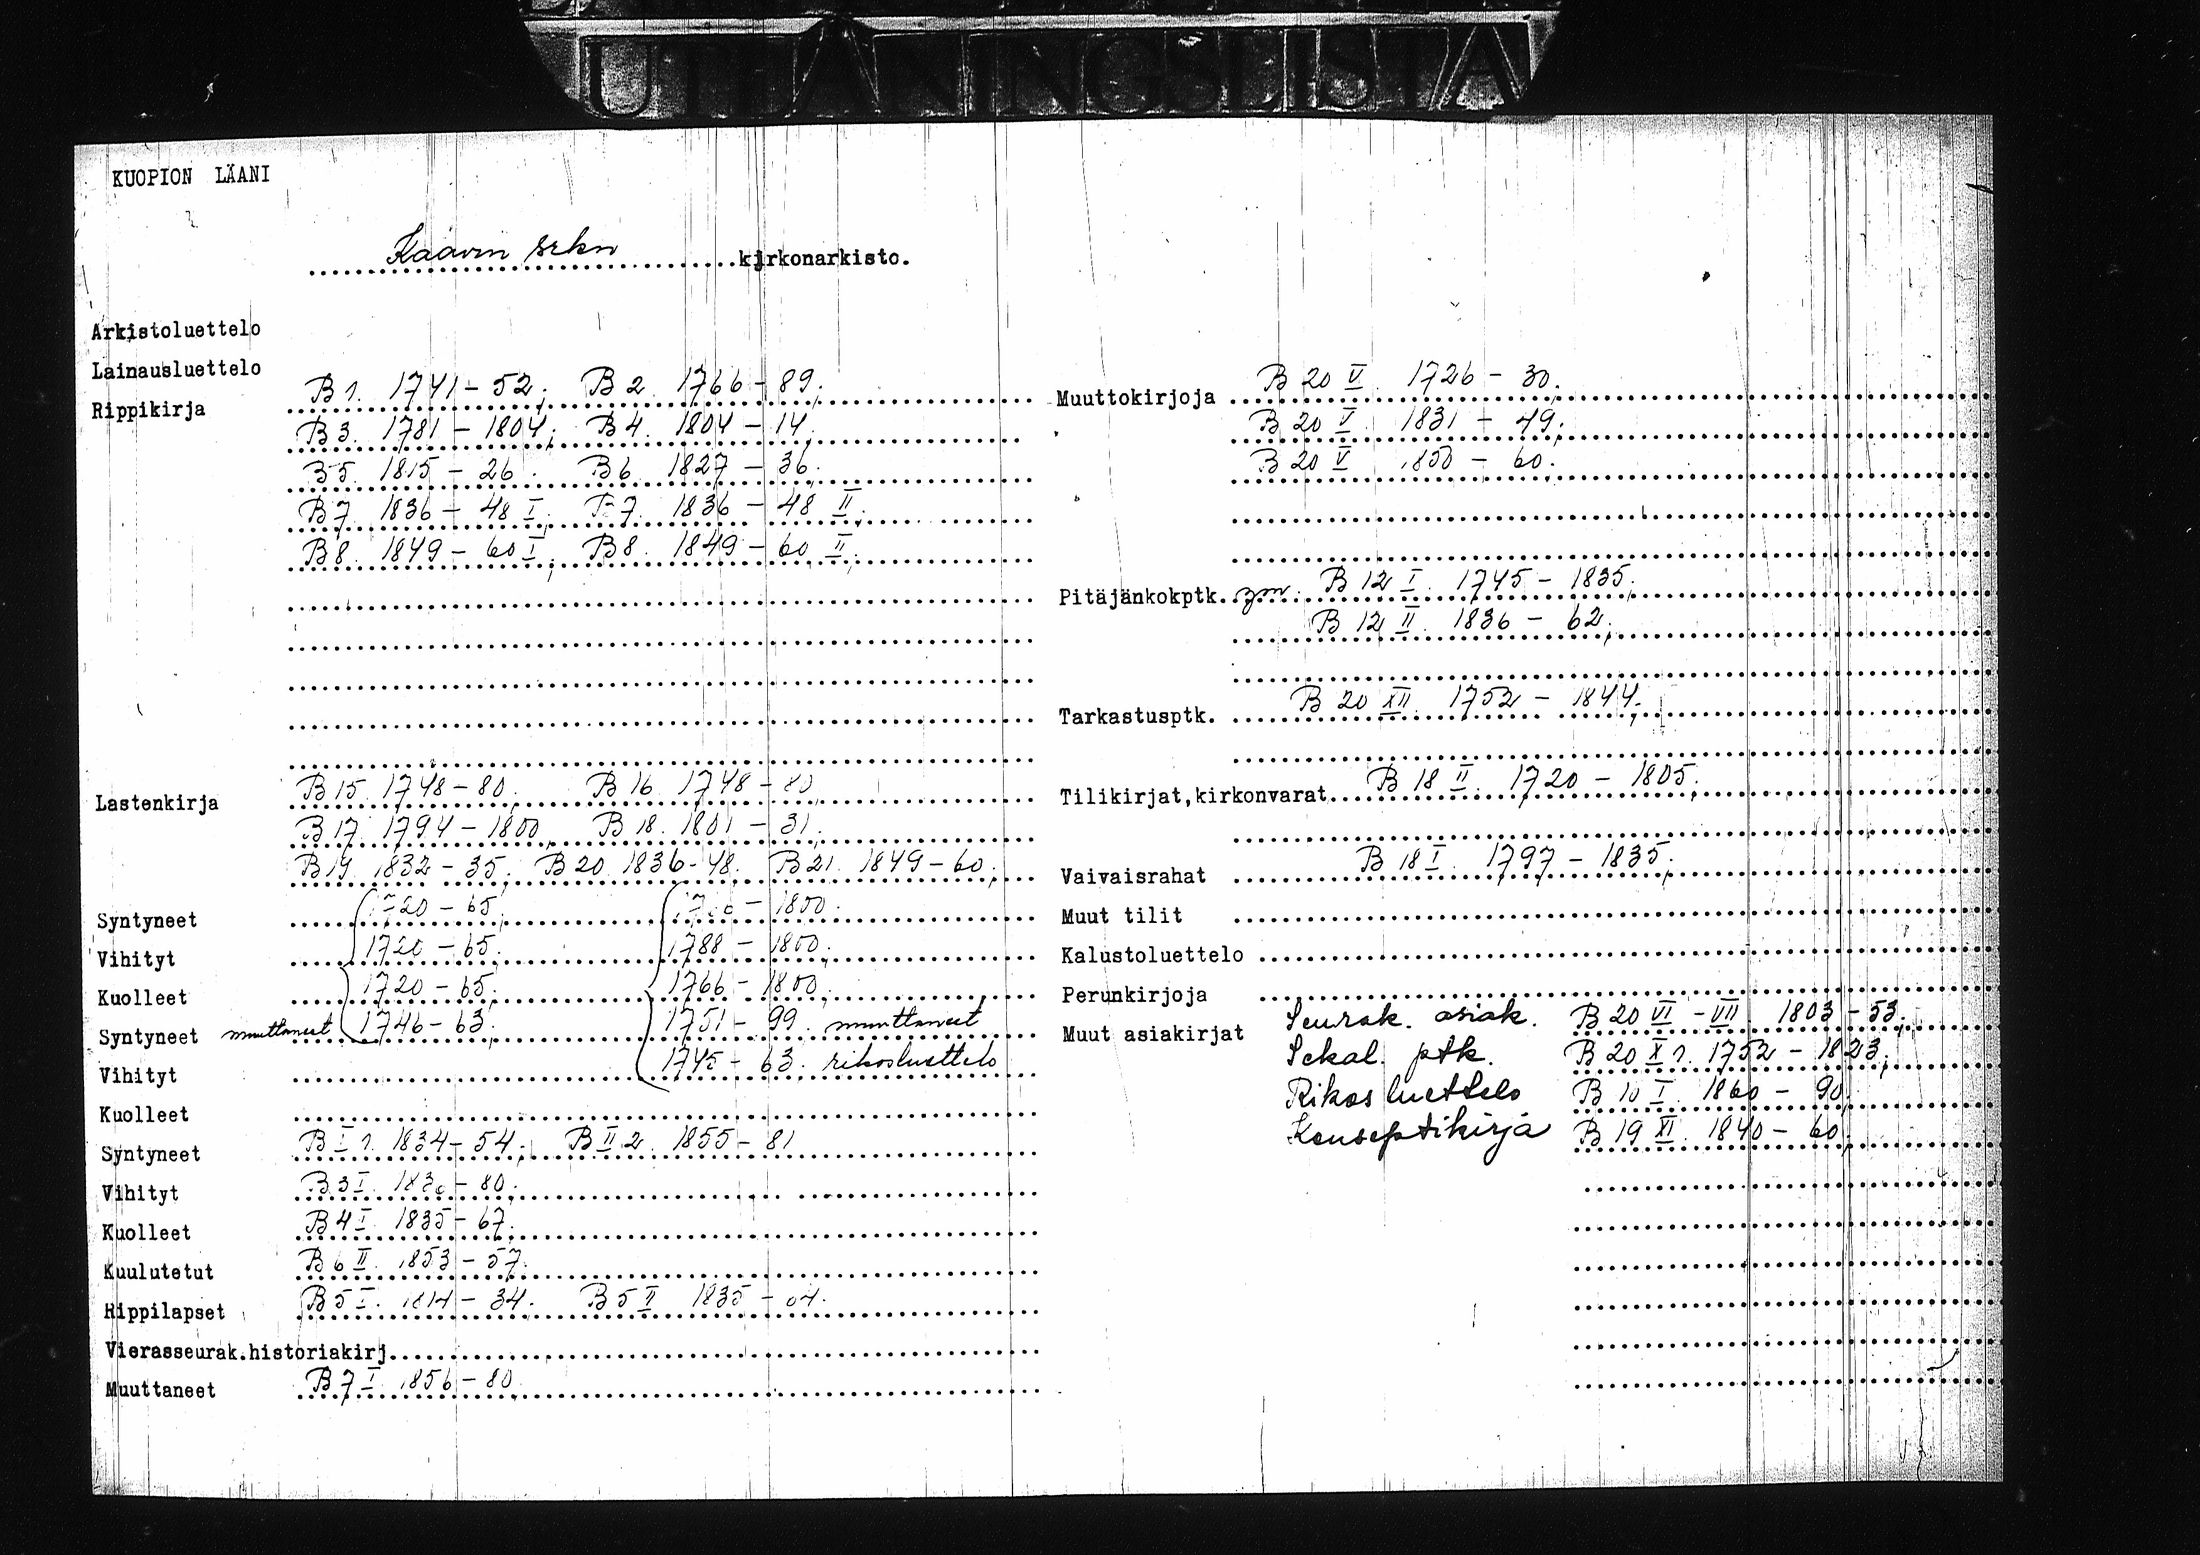 UTLÅNINGSLISTA
KUOPION LÄÄNI
Kaavin srkn kirkonarkisto.
Arkistoluettelo
Lainausluettelo
Rippikirja B 1. 1741 - 52; B 2. 1766 - 89;
B 3. 1781 - 1804; B 4. 1804 - 14;
B 5. 1815 - 26. B 6. 1827 - 36.
B 7. 1836 - 48 I; B 7. 1836 - 48 II;
B 8. 1849 - 60 I; B 8. 1849 - 60 II;
Lastenkirja B 15. 1748 - 80; B 16. 1748 - 80;
B 17. 1794 - 1800; B 18. 1801 - 31;
B 19. 1832 - 35; B 20. 1836 - 48. B 21. 1849 - 60;
Syntyneet 1720 - 65; - 1800.
Vihityt 1720 - 65; 1788 - 1800;
Kuolleet 1720 - 65; 1766 - 1800;
Syntyneet muuttaneet 1746 - 63; 1751 - 99. muuttaneet
Vihityt 1745 - 63. rikosluettelo
Kuolleet
Syntyneet B I 1. 1834 - 54; B II 2. 1855 - 81
Vihityt B 3 I. - 80;
Kuolleet B 4 I. 1835 - 67.
Kuulutetut B 6 II. 1853 - 57.
Rippilapset B 5 I. 1814 - 34. B 5 II 1835 -
Vierasseurak.historiakirj.
Muuttaneet B 7 I. 1856 - 80.
Muuttokirjoja B 20 V. 1726 - 30;
B 20 V. 1831 - 49;
B 20 V 1850 - 60.
Pitäjänkokptk. ym. B 12 I. 1745 - 1835;
B 12 II. 1836 - 62;
Tarkastusptk. B 20 XII. 1752 - 1844;
Tilikirjat,kirkonvarat B 18 II. 1720 - 1805;
Vaivaisrahat B 18 I. 1797 - 1835;
Muut tilit
Kalustoluettelo
Perunkirjoja
Muut asiakirjat Seurak. asiak. B 20 VI - VII. 1803 - 53;
Sekal. ptk. B 20 X 1. 1752 - 1823;
Rikosluettelo B 10 I. 1860 - 90;
Konseptikirja B 19 XI. 1840 - 60;